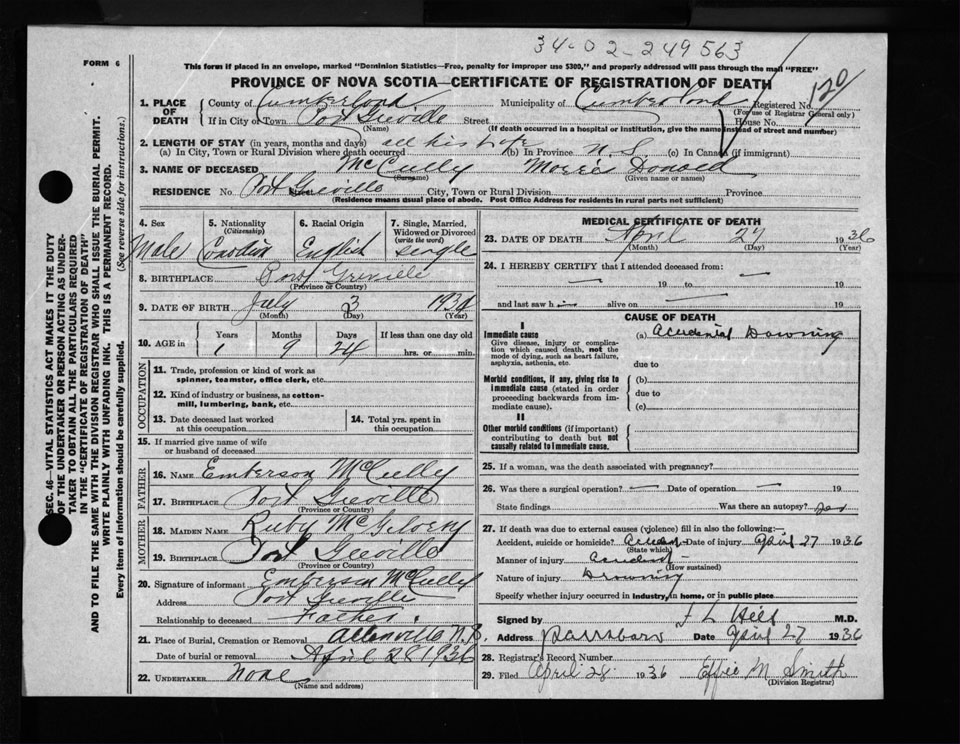 34-02-249563
FORM 6
This form if placed in an envelope, marked "Dominion Statistics—Free, penalty for improper use $300," and properly addressed will pass through the mail "FREE"
PROVINCE OF NOVA SCOTIA—CERTIFICATE OF REGISTRATION OF DEATH
SEC. 46—VITAL STATISTICS ACT MAKES IT THE DUTY
OF THE UNDERTAKER OR PERSON ACTING AS UNDER-
TAKER TO OBTAIN ALL THE PARTICULARS REQUIRED
IN THE "CERTIFICATE OF REGISTRATION OF DEATH"
AND TO FILE THE SAME WITH THE DIVISION REGISTRAR WHO SHALL ISSUE THE BURIAL PERMIT.
WRITE PLAINLY WITH UNFADING INK. THIS IS A PERMANENT RECORD.
Every item of information should be carefully supplied. (See reverse side for instructions.)
1. PLACE OF DEATH County of Cumberland Municipality of Cumberland Registered No. 120
(For use of Registrar General only)
If in City or Town Port Greville Street House No.
(Name) (If death occurred in a hospital or institution, give the name instead of street and number)
2. LENGTH OF STAY (in years, months and days) all his life
(a) In City, Town or Rural Division where death occurred (b) In Province N.S. (c) In Canada (if immigrant)
3. NAME OF DECEASED McCully Donald
(Surname) (Given name or names)
RESIDENCE No. Port Greville Street City, Town or Rural Division Province
(Residence means usual place of abode. Post Office Address for residents in rural parts not sufficient)
4. Sex Male
5. Nationality (Citizenship) Canadian
6. Racial Origin English
7. Single, Married, Widowed or Divorced (write the word) Single
8. BIRTHPLACE Port Greville
(Province or Country)
9. DATE OF BIRTH July 3 1934
(Month) (Day) (Year)
10. AGE in Years 1 Months 9 Days 24 If less than one day old hrs. or min.
OCCUPATION
11. Trade, profession or kind of work as spinner, teamster, office clerk, etc.
12. Kind of industry or business, as cotton-mill, lumbering, bank, etc.
13. Date deceased last worked at this occupation
14. Total yrs. spent in this occupation
15. If married give name of wife or husband of deceased
FATHER
16. NAME Emberson McCully
17. BIRTHPLACE Port Greville
(Province or Country)
MOTHER
18. MAIDEN NAME Ruby McGilvery
19. BIRTHPLACE Port Greville
(Province or Country)
20. Signature of informant Emberson McCully
Address Port Greville
Relationship to deceased Father
21. Place of Burial, Cremation or Removal Allenville N.S.
Date of burial or removal April 28 1936
22. UNDERTAKER None
(Name and address)
MEDICAL CERTIFICATE OF DEATH
23. DATE OF DEATH April 27 1936
(Month) (Day) (Year)
24. I HEREBY CERTIFY that I attended deceased from:
— 19 to — 19
and last saw h im alive on — 19
CAUSE OF DEATH
I
Immediate cause (a) Accidental Drowning
Give disease, injury or complication which caused death, not the mode of dying, such as heart failure, asphyxia, asthenia, etc.
due to
Morbid conditions, if any, giving rise to immediate cause (stated in order proceeding backwards from immediate cause).
(b)
due to
(c)
II
Other morbid conditions (if important) contributing to death but not causally related to immediate cause.
25. If a woman, was the death associated with pregnancy?
26. Was there a surgical operation? — Date of operation — 19
State findings Was there an autopsy?
27. If death was due to external causes (violence) fill in also the following:—
Accident, suicide or homicide? Accident Date of injury April 27 1936
(State which)
Manner of injury accident
(How sustained)
Nature of injury Drowning
Specify whether injury occurred in industry, in home, or in public place
Signed by J L Hill M.D.
Address Parrsboro Date April 27 1936
28. Registrar's Record Number
29. Filed April 28 1936 Effie M Smith
(Division Registrar)